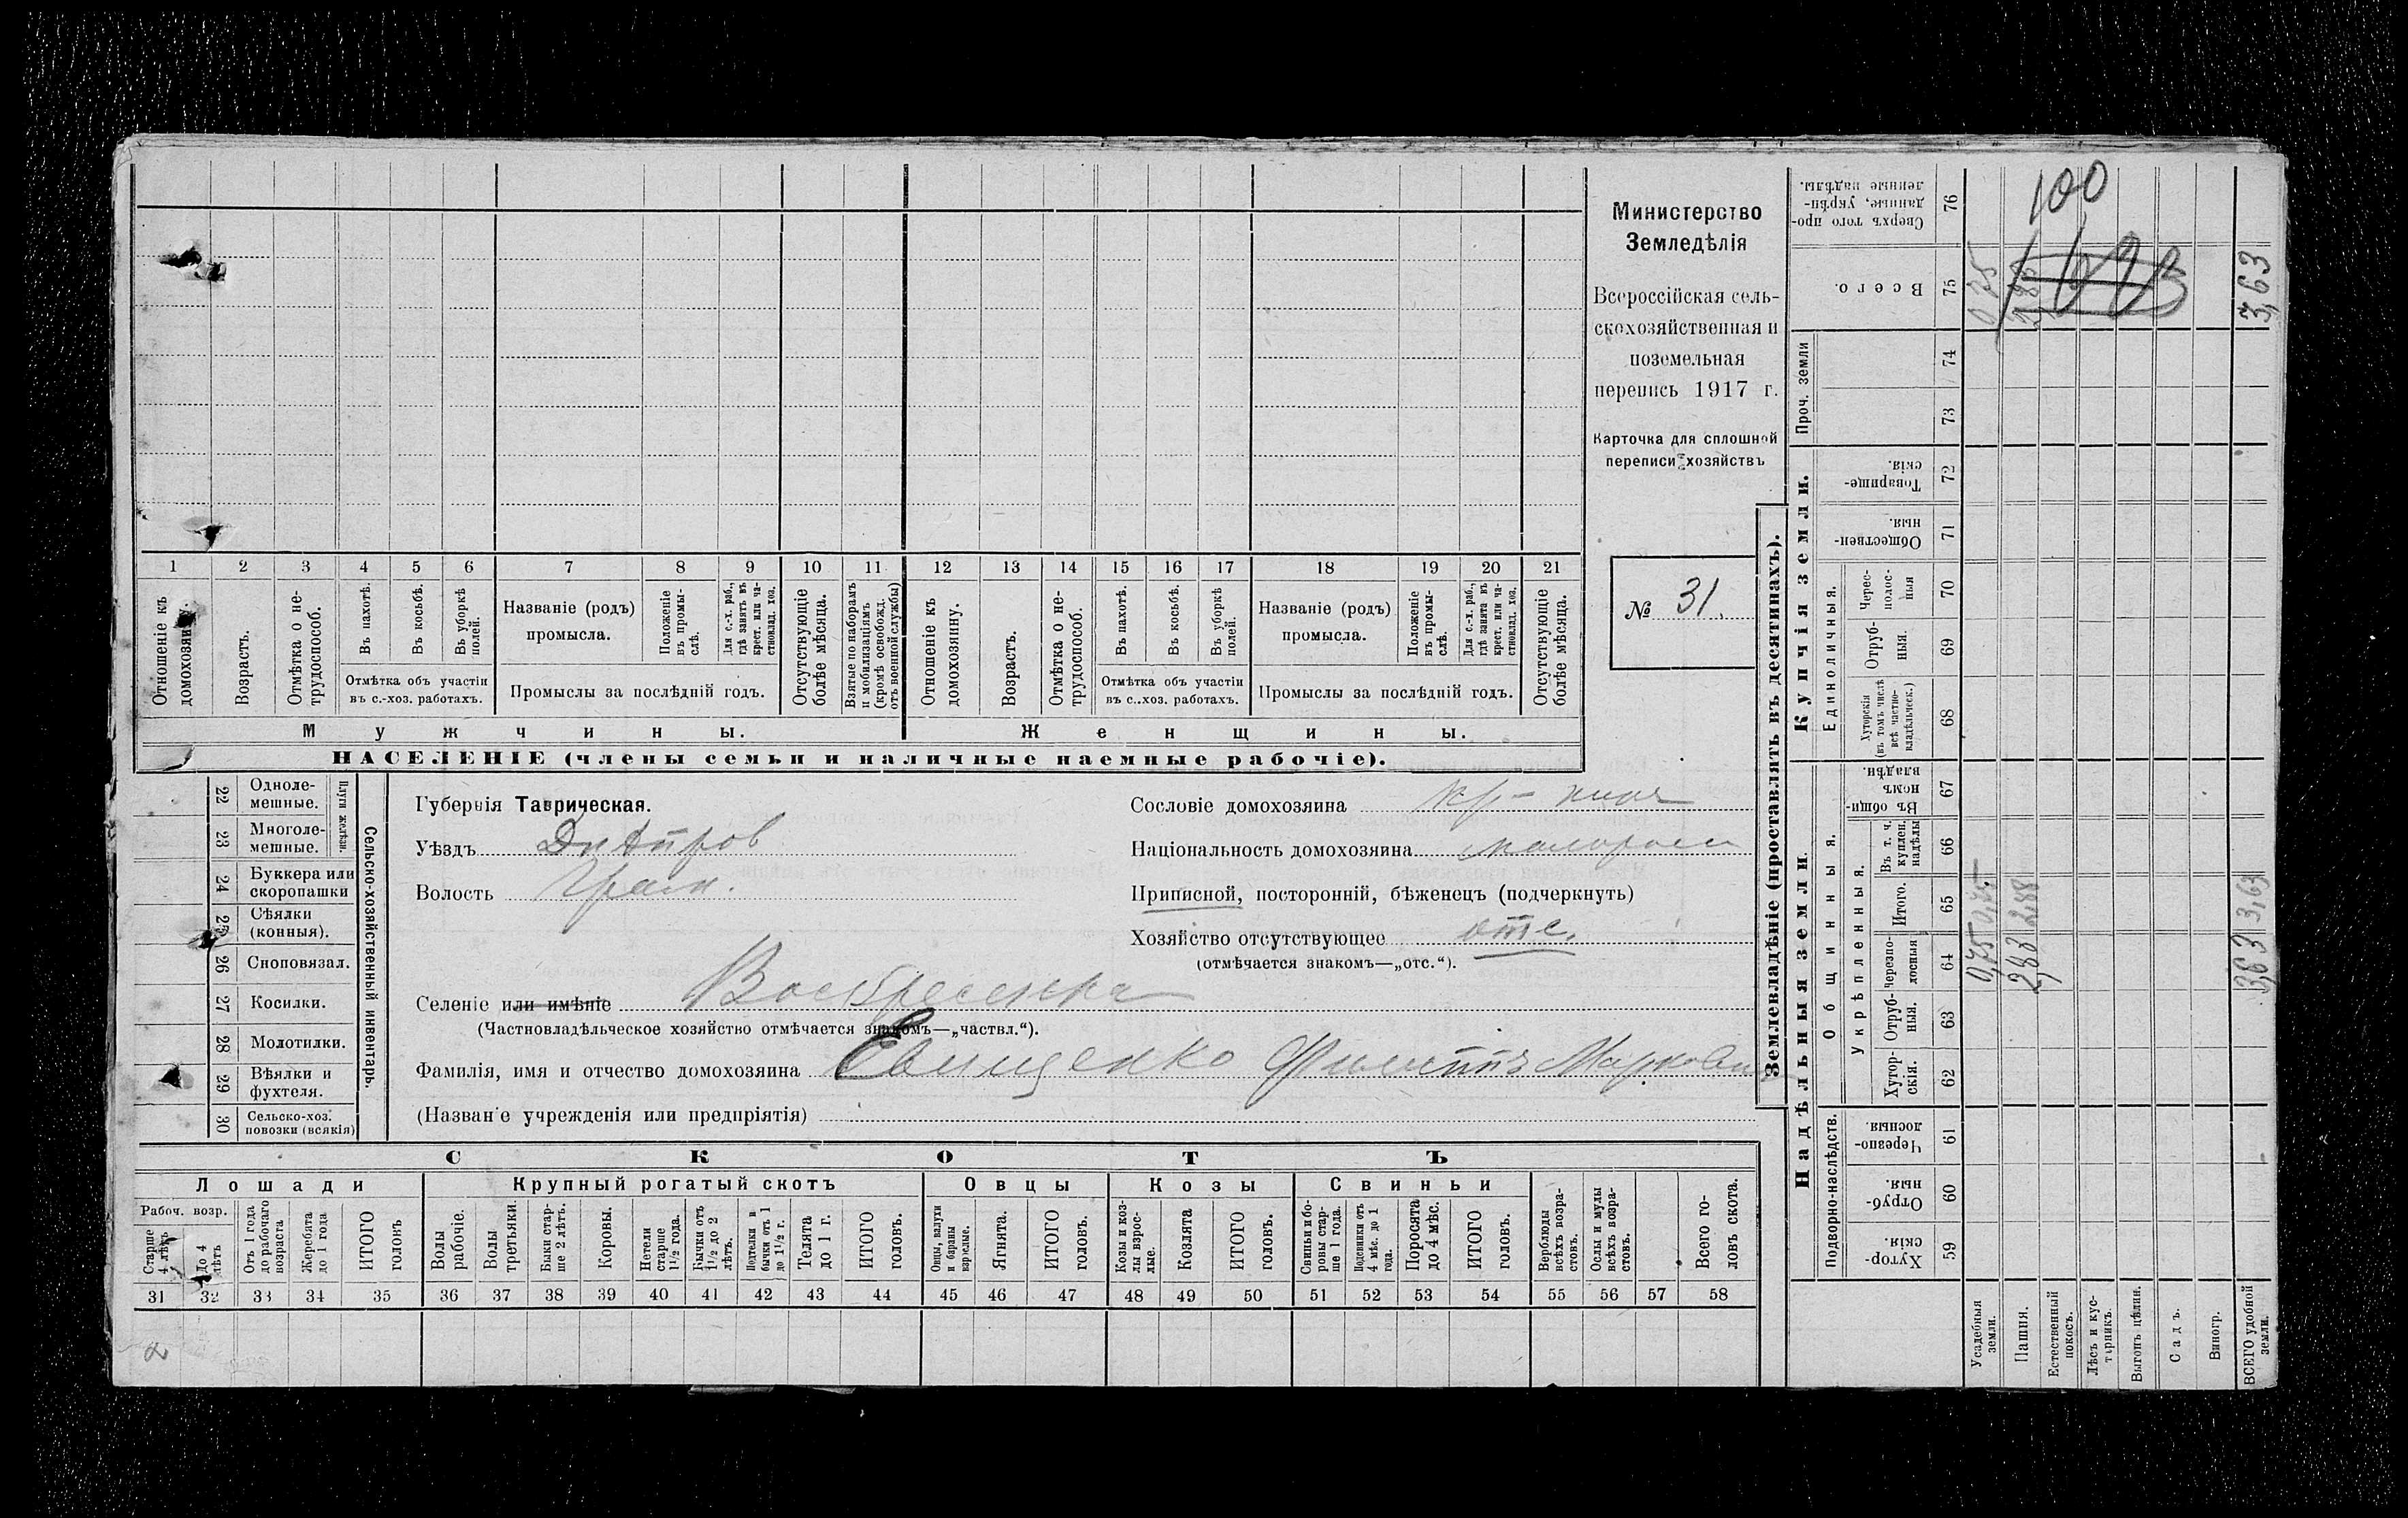 Министерство
Земледѣлія
Всероссійская сель-
скохозяйственная и
поземельная
перепись 1917 г.
Карточка для сплошной
переписи хозяйствъ
№ 31.
1 2 3 4 5 6 7 8 9 10 11 12 13 14 15 16 17 18 19 20 21
Отношеніе къ домохозяину.
Возрастъ.
Отмѣтка о не-трудоспособ.
Въ пахотѣ.
Въ косьбѣ.
Въ уборкѣ полей.
Отмѣтка объ участіи
въ с.-хоз. работахъ.
Названіе (родъ)
промысла.
Положеніе въ промы-слѣ.
Для с.-х. раб., гдѣ занятъ въ крест. или ча-стновлад. хоз.
Промыслы за послѣдній годъ.
Отсутствующіе болѣе мѣсяца.
Взятые по наборамъ и мобилизаціямъ (кромѣ освобожд. отъ военной службы)
Отношеніе къ домохозяину.
Возрастъ.
Отмѣтка о не-трудоспособ.
Въ пахотѣ.
Въ косьбѣ.
Въ уборкѣ полей.
Отмѣтка объ участіи
въ с..хоз. работахъ.
Названіе (родъ)
промысла.
Положеніе въ промы-слѣ.
Для с.-х. раб., гдѣ занята въ крест. или ча-стновлад. хоз.
Промыслы за послѣдній годъ.
Отсутствующіе болѣе мѣсяца.
Мужчины.
Женщины.
НАСЕЛЕНІЕ (члены семьи и наличные наемные рабочіе).
22 Одноле-мешные.
23 Многоле-мешные.
Плуги желѣзн.
24 Буккера или скоропашки
25 Сѣялки (конныя).
26 Сноповязал.
27 Косилки.
28 Молотилки.
29 Вѣялки и фухтеля.
30 Сельско-хоз. повозки (всякія)
Сельско-хозяйственный инвентарь.
Губернія Таврическая.
Уѣздъ Днѣпров
Волость
Сословіе домохозяина
Національность домохозяина малоросс
Приписной, посторонній, бѣженецъ (подчеркнуть)
Хозяйство отсутствующее отс.
(отмѣчается знакомъ—„отс.“).
Селеніе или имѣніе Воскресенка
(Частновладѣльческое хозяйство отмѣчается знакомъ—„частвл.“).
Фамилія, имя и отчество домохозяина Евищенко Филиппъ Маркови
(Названіе учрежденія или предпріятія)
СКОТЪ
Лошади
Крупный рогатый скотъ
Овцы
Козы
Свиньи
Рабоч. возр.
Старше 4 лѣтъ
До 4 лѣтъ
Отъ 1 года до рабочаго возраста
Жеребята до 1 года
ИТОГО головъ
Волы рабочіе.
Волы третьяки.
Быки стар-ше 2 лѣтъ.
Коровы.
Нетели старше 1½ года.
Бычки отъ 1½ до 2 лѣтъ.
Подтелки и бычки отъ 1 до 1½ г.
Телята до 1 г.
ИТОГО головъ.
Овцы, валухи и бараны взрослые.
Ягнята.
ИТОГО головъ.
Козы и коз-лы взрос-лые.
Козлята
ИТОГО головъ.
Свиньи и бо-ровы стар-ше 1 года.
Подсвинки отъ 4 мѣс. до 1 года.
Поросята до 4 мѣс.
ИТОГО головъ.
Верблюды всѣхъ возра-стовъ.
Ослы и мулы всѣхъ возра-стовъ.
Всего го-ловъ скота.
31 32 33 34 35 36 37 38 39 40 41 42 43 44 45 46 47 48 49 50 51 52 53 54 55 56 57 58
2
Землевладѣніе (проставлять въ десятинахъ).
Надѣльныя земли.
Купчія земли.
Подворно-наслѣдств.
Общинныя.
Укрѣпленныя.
Единоличныя.
Проч. земли
Хутор-скія. 59
Отруб-ныя. 60
Черезпо-лосныя. 61
Хутор-скія. 62
Отруб-ныя. 63
Черезпо-лосныя 64
Итого. 65
Въ т. ч. куплен. надѣлы 66
Въ общин-номъ владѣн. 67
Хуторскія (въ томъ числѣ всѣ частно-владѣльческ.) 68
Отруб-ныя. 69
Черес-полос-ныя 70
Обществен-ныя. 71
Товарище-скія. 72
73
74
Всего. 75
Сверхъ того про-данные, укрѣп-ленные надѣлы. 76
Усадебныя земли. 0,75 0,75 0,75
Пашня. 2,88 2,88 2,88
Естественный покосъ.
Лѣсъ и кус-тарникъ.
Выгонъ цѣлин.
Садъ.
Виногр.
ВСЕГО удобной земли. 3,63 3,63 3,63
100